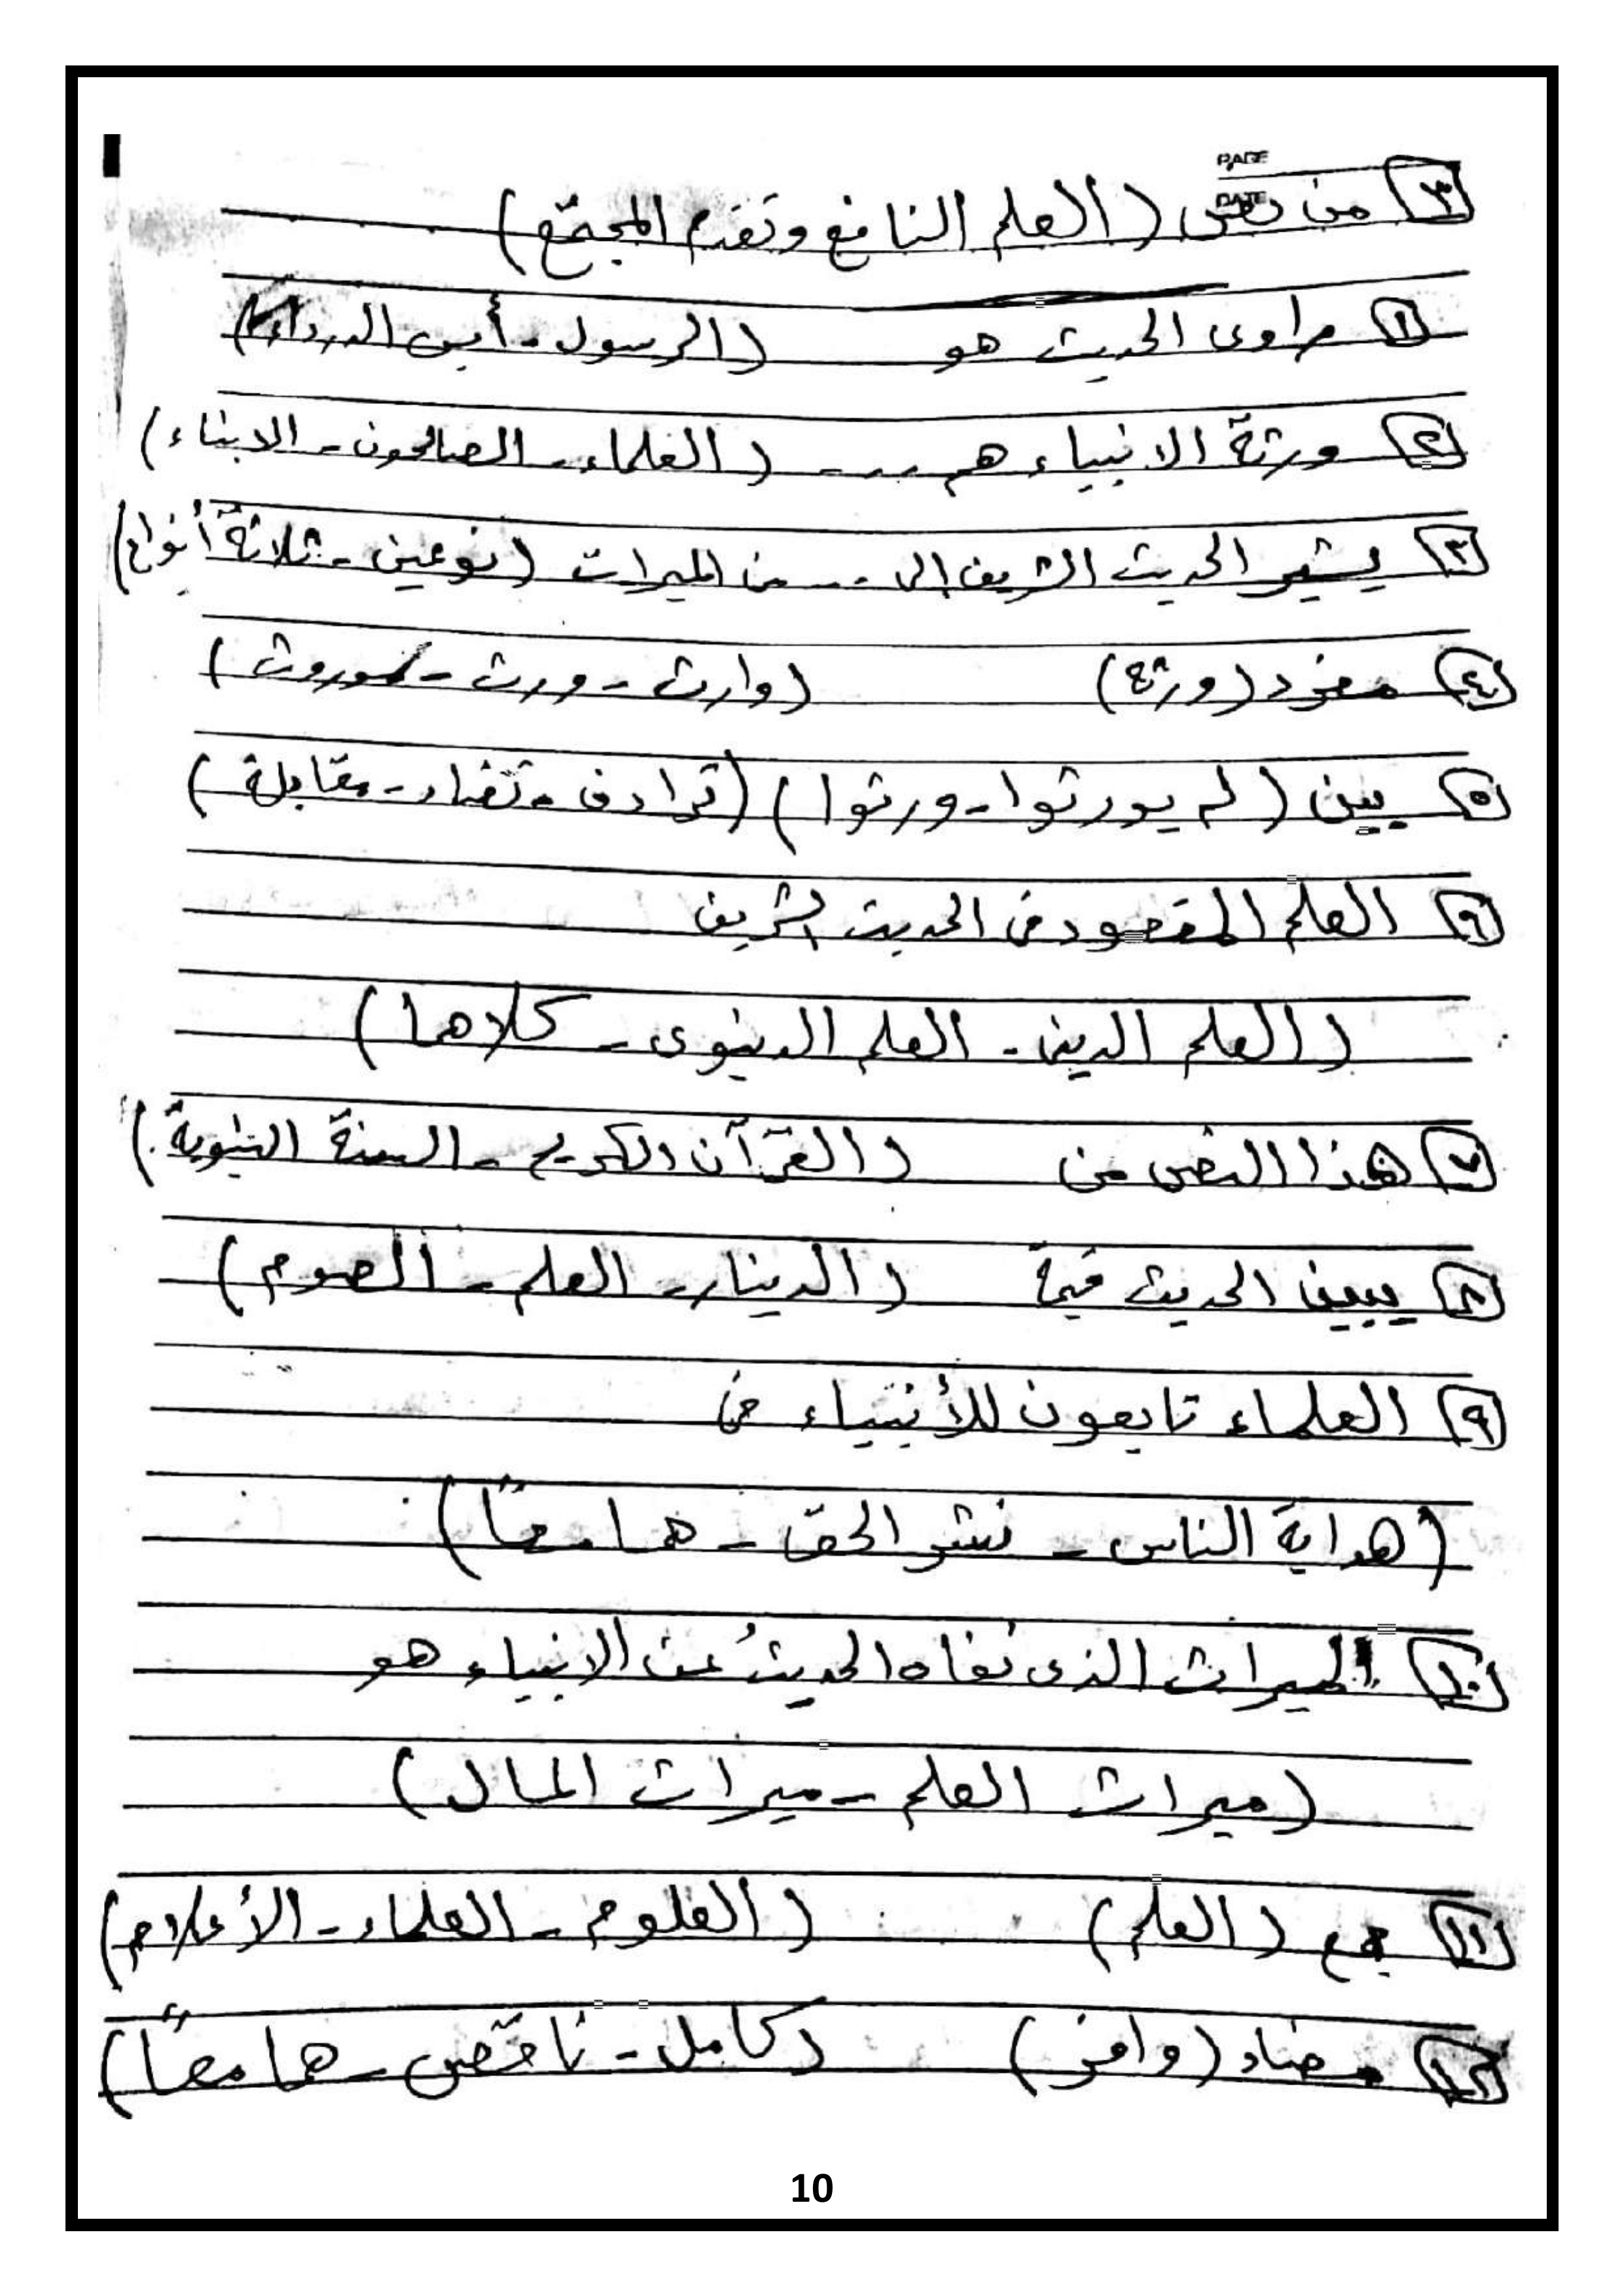 PAGE
DATE
٣ من نص (العلم النافع وتقدم المجتمع)
١ راوى الحديث هو (الرسول - أبى الدرداء)
٢ ورثة الانبياء هم --- (العلماء - الصالحون - الابناء)
٣ يشير الحديث الشريف الى --- من الميراث (نوعين - ثلاثة أنواع)
٤ مفرد (ورثة) (وارث - ورث - موروث)
٥ بين (لم يورثوا - ورثوا) (ترادف - تضاد - مقابلة)
٦ العلم المقصود فى الحديث الشريف
(العلم الدينى - العلم الدنيوى - كلاهما)
٧ هذا النص من (القرآن الكريم - السنة النبوية)
٨ يبين الحديث قيمة (الدينار - العلم - الصوم)
٩ العلماء تابعون للأنبياء فى
(هداية الناس - نشر الحق - هما معًا)
١٠ الميراث الذى نفاه الحديثُ عن الانبياء هو
(ميراث العلم - ميراث المال)
١١ جمع (العلم) (العلوم - العلماء - الأعلام)
١٢ مضاد (وافر) (كامل - ناقص - هما معًا)
10